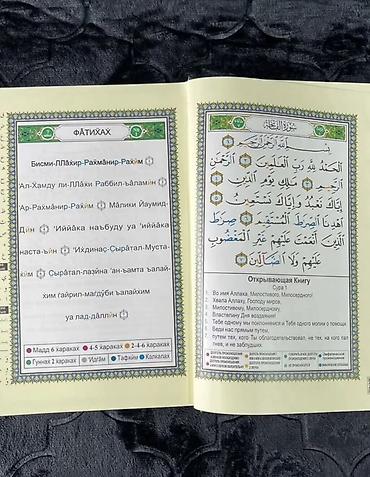 ФĀТИХАХ
Бисми-ЛЛāхир-Рахмāнир-Рахӣм ١
'Ал-Хамду ли-ЛЛāхи Раббил-ъāламӣн ٢
'Ар-Рахмāнир-Рахӣм ٣ Мāлики Йаумид-
Дӣн ٤ 'Иййāка наъбуду уа 'иййāка
наста-ъӣн ٥ 'Ихдинаç-Çырāтал-Муста-
хӣм ٦ Çырāтал-лазӣна 'ан-ъамта ъалай-
хим ғайрил-мағдӯби ъалайхим
уа лад-дāллӣн ٧
Мадд 6 хараках
4-5 хараках
2-4-6 хараках
Гуннах 2 хараках
Идғāм
Тафхӣм
Калкалах
سُورَةُ الْفَاتِحَةِ
بِسْمِ اللَّهِ الرَّحْمَٰنِ الرَّحِيمِ ١
الْحَمْدُ لِلَّهِ رَبِّ الْعَالَمِينَ ٢ الرَّحْمَٰنِ
الرَّحِيمِ ٣ مَالِكِ يَوْمِ الدِّينِ ٤
إِيَّاكَ نَعْبُدُ وَإِيَّاكَ نَسْتَعِينُ ٥
اهْدِنَا الصِّرَاطَ الْمُسْتَقِيمَ ٦ صِرَاطَ
الَّذِينَ أَنْعَمْتَ عَلَيْهِمْ غَيْرِ الْمَغْضُوبِ
عَلَيْهِمْ وَلَا الضَّالِّينَ ٧
Открывающая Книгу
Сура 1
1. Во имя Аллаха, Милостивого, Милосердного!
2. Хвала Аллаху, Господу миров,
3. Милостивому, Милосердному,
4. Властелину Дня воздаяния!
5. Тебе одному мы поклоняемся и Тебя одного молим о помощи.
6. Веди нас прямым путем,
7. путем тех, кого Ты облагодетельствовал, не тех, на кого пал
гнев, и не заблудших.